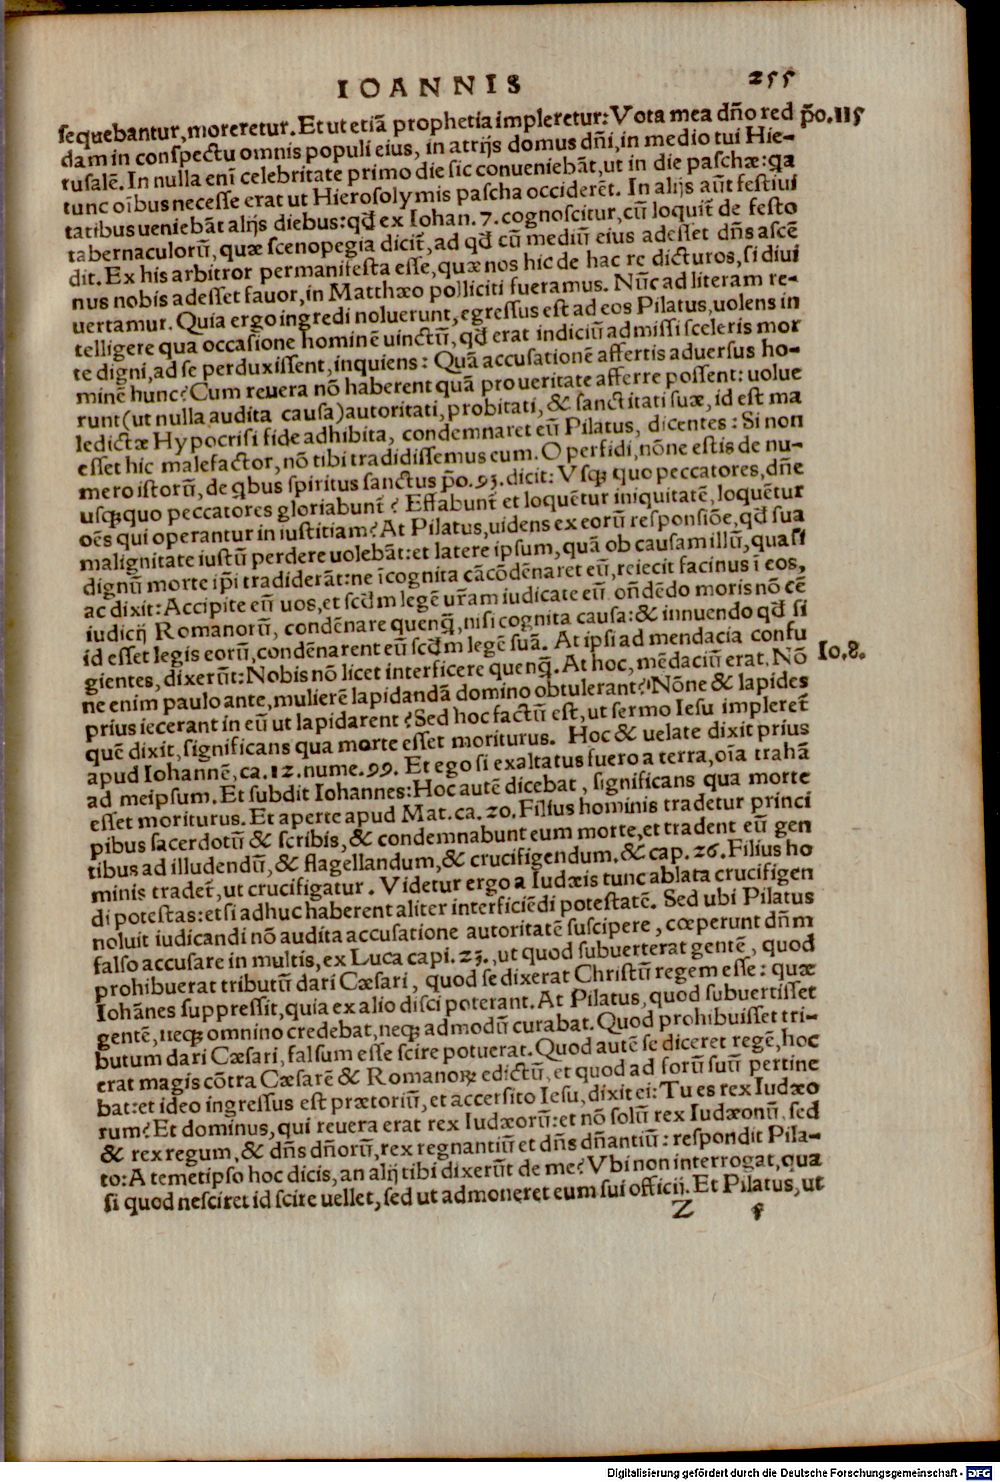 IOANNIS 255
sequebantur, moreretur. Et ut etiã prophetia impleretur: Vota mea dño red p̃o. 115
dam in conspectu omnis populi eius, in atrijs domus dñi, in medio tui Hie-
rusalẽ. In nulla enĩ celebritate primo die sic conueniebãt, ut in die paschæ: qa
tunc oĩbus necesse erat ut Hierosolymis pascha occiderẽt. In alijs aũt festiui
tatibus ueniebãt alijs diebus: qđ ex Iohan. 7. cognoscitur, cũ loquit̃ de festo
tabernaculorũ, quæ scenopegia dicit̃, ad qđ cũ mediũ eius adesset dñs ascẽ
dit. Ex his arbitror permanifesta esse, quæ nos hic de hac re dicturos, si diui
nus nobis adesset fauor, in Matthæo polliciti fueramus. Nũc ad literam re-
uertamur. Quia ergo ingredi noluerunt, egressus est ad eos Pilatus, uolens in
telligere qua occasione hominẽ uinctũ, qđ erat indiciũ admissi sceleris mor
te digni, ad se perduxissent, inquiens: Quã accusationẽ affertis aduersus ho-
minẽ hunc? Cum reuera nõ haberent quã pro ueritate afferre possent: uolue
runt (ut nulla audita causa) autoritati, probitati, & sanctitati suæ, id est ma
ledictæ Hypocrisi fide adhibita, condemnaret eũ Pilatus, dicentes: Si non
esset hic malefactor, nõ tibi tradidissemus eum. O perfidi, nõne estis de nu-
mero istorũ, de qbus spiritus sanctus p̃o. 93. dicit: Vsq; quo peccatores, dñe
usq;quo peccatores gloriabunt̃? Effabunt̃ et loquẽtur iniquitatẽ, loquẽtur
oẽs qui operantur in iustitiam? At Pilatus, uidens ex eorũ responsiõe, qđ sua
malignitate iustũ perdere uolebãt: et latere ipsum, quã ob causam illũ, quasi
dignũ morte ip̃i tradiderãt: ne ĩcognita cã cõdẽnaret eũ, reiecit facinus ĩ eos,
ac dixit: Accipite eũ uos, et scđm legẽ ur̃am iudicate eũ. oñdẽdo moris nõ cẽ
iudicij Romanorũ, condẽnare quenq̃, nisi cognita causa: & innuendo qđ si
id esset legis eorũ, condẽnarent eũ scđm legẽ suã. At ipsi ad mendacia confu
gientes, dixerũt: Nobis nõ licet interficere quenq̃. At hoc, mẽdaciũ erat. Nõ Io. 8.
ne enim paulo ante, mulierẽ lapidandã domino obtulerant? Nõne & lapides
prius iecerant in eũ ut lapidarent? Sed hoc factũ est, ut sermo Iesu impleret̃
quẽ dixit, significans qua morte esset moriturus. Hoc & uelate dixit prius
apud Iohannẽ, ca. 12. nume. 99. Et ego si exaltatus fuero a terra, oĩa trahã
ad meipsum. Et subdit Iohannes: Hoc autẽ dicebat, significans qua morte
esset moriturus. Et aperte apud Mat. ca. 20. Filius hominis tradetur princi
pibus sacerdotũ & scribis, & condemnabunt eum morte, et tradent eũ gen
tibus ad illudendũ, & flagellandum, & crucifigendum. & cap. 26. Filius ho
minis tradet̃, ut crucifigatur. Videtur ergo a Iudæis tunc ablata crucifigen
di potestas: etsi adhuc haberent aliter interficiẽdi potestatẽ. Sed ubi Pilatus
noluit iudicandi nõ audita accusatione autoritatẽ suscipere, cœperunt dñm
falso accusare in multis, ex Luca capi. 23., ut quod subuerterat gentẽ, quod
prohibuerat tributũ dari Cæsari, quod se dixerat Christũ regem esse: quæ
Iohãnes suppressit, quia ex alio disci poterant. At Pilatus, quod subuertisset
gentẽ, neq; omnino credebat, neq; admodũ curabat. Quod prohibuisset tri-
butum dari Cæsari, falsum esse scire potuerat. Quod autẽ se diceret regẽ, hoc
erat magis cõtra Cæsarẽ & Romanoꝝ edictũ, et quod ad forũ suũ pertine
bat: et ideo ingressus est prætoriũ, et accersito Iesu, dixit ei: Tu es rex Iudæo
rum? Et dominus, qui reuera erat rex Iudæorũ: et nõ solũ rex Iudæonũ, sed
& rex regum, & dñs dñorũ, rex regnantiũ et dñs dñantiũ: respondit Pila-
to: A temetipso hoc dicis, an alij tibi dixerũt de me? Vbi non interrogat, qua
si quod nesciret id scire uellet, sed ut admoneret eum sui officij. Et Pilatus, ut
Z s
Digitalisierung gefördert durch die Deutsche Forschungsgemeinschaft - DFG